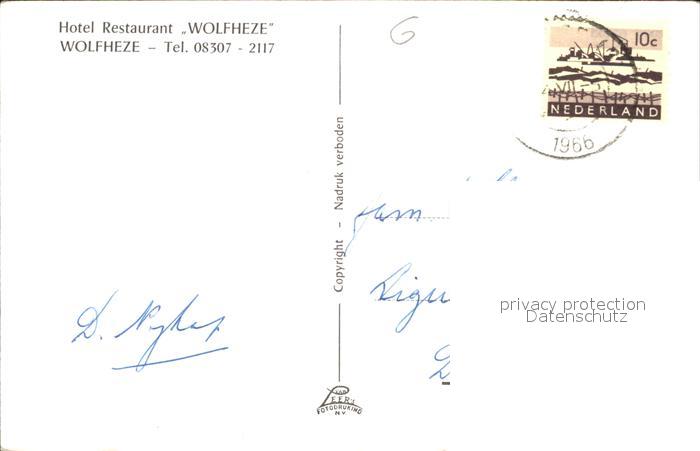 Hotel Restaurant „WOLFHEZE"
WOLFHEZE – Tel. 08307 - 2117
G
10c
NEDERLAND
1966
Copyright - Nadruk verboden
D.
privacy protection
Datenschutz
VAN
LEER's
FOTODRUKIND
N.V.